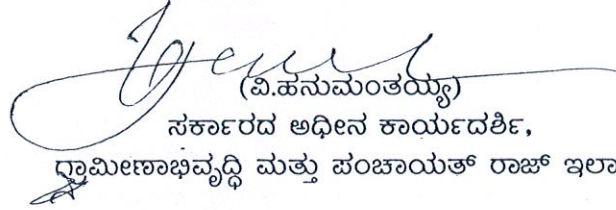 (ವಿ.ಹನುಮಂತಯ್ಯ)
ಸರ್ಕಾರದ ಅಧೀನ ಕಾರ್ಯದರ್ಶಿ,
ಗ್ರಾಮೀಣಾಭಿವೃದ್ಧಿ ಮತ್ತು ಪಂಚಾಯತ್ ರಾಜ್